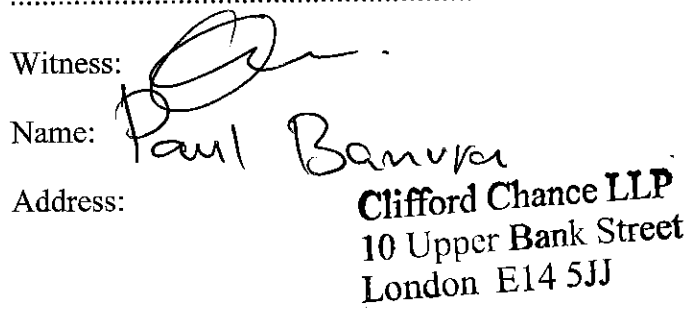 Witness:
Name: Paul
Address:
Clifford Chance LLP
10 Upper Bank Street
London E14 5JJ